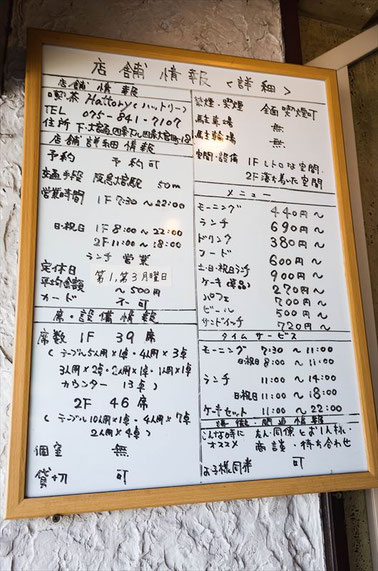 店舗情報 <詳細>
店舗情報
喫茶 Hattory (ハットリー)
TEL 075-841-7107
住所 下.大宮通四条下ル四条大宮町18
店舗詳細情報
予約 予約可
交通手段 阪急大宮駅 50m
営業時間 1F 7:30 ~ 22:00
日・祝日 1F 8:00 ~ 22:00
2F 11:00 ~ 18:00
ランチ 営業
定休日 第1,第3月曜日
平均金額 ~500円
カード 不可
席・設備情報
席数 1F 39席
(テーブル5人用×1卓・4人用×3卓
3人用×2卓・2人用×1卓・1人用×1卓
カウンター 13卓)
2F 46席
(テーブル10人用×1卓・4人用×7卓
2人用×4卓)
個室 無
貸切 可
禁煙・喫煙 全面喫煙可
駐車場 無
駐輪場 無
空間・設備 1F レトロな空間
2F 落ち着いた空間
メニュー
モーニング 440円~
ランチ 690円~
ドリンク 380円~
フード 600円~
土・日・祝日ランチ 900円~
ケーキ(単品) 270円~
パフェ 700円~
ビール 500円~
サンドイッチ 720円~
タイムサービス
モーニング 7:30 ~ 11:00
日祝 8:00 ~ 11:00
ランチ 11:00 ~ 14:00
日祝日 11:00 ~ 18:00
ケーキセット 11:00 ~ 22:00
こんな時に 友人・同僚とお1人様、
オススメ 商談・待ち合わせ
お子様同伴 可